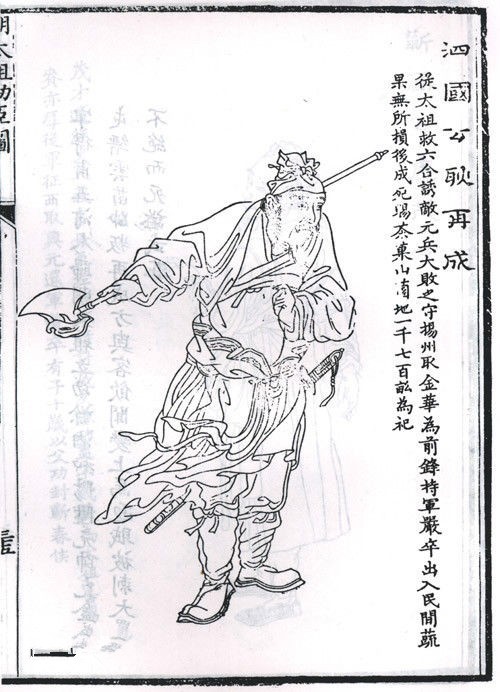 泗國公耿再成
從太祖救六合誘敵元兵大敗之守揚州取金華為前鋒將軍嚴卒出入民間蔬
果無所損後成死塲奈菓山地一千七百畝為祀
明太祖功臣圖